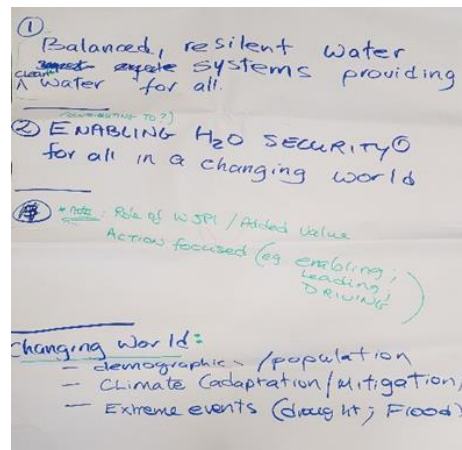 ①
Balanced, resilent water
systems providing
clean
^ water for all.
(CONTRIBUTING TO?)
② ENABLING H₂O SECURITY
for all in a changing world
* Note: Role of WJPI / Added Value
Action focused (eg enabling;
Leading;
DRIVING)
Changing World:
- demographic - /population
- Climate (adaptation/Mitigation,
- Extreme events (drought; Flood)